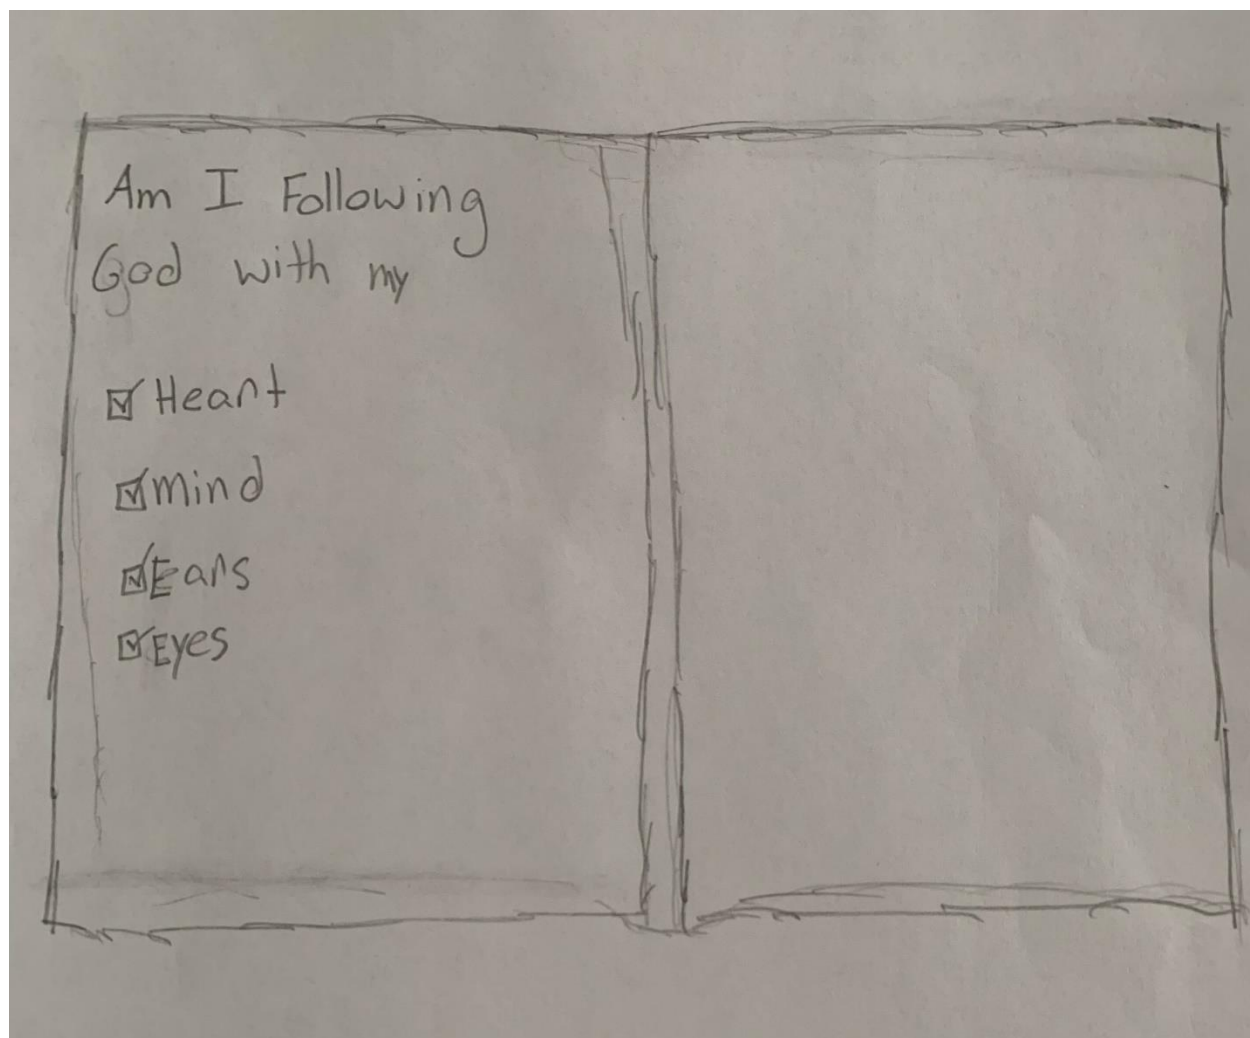 Am I Following
God with my
☑ Heart
☑ mind
☑ Ears
☑ Eyes